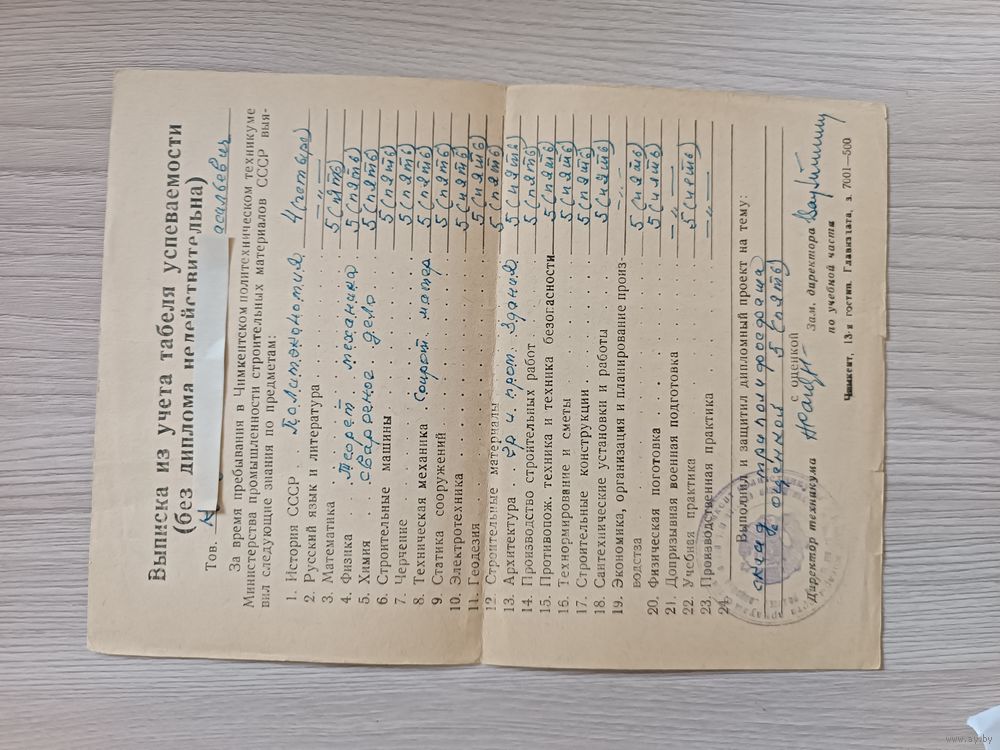 Выписка из учета табеля успеваемости
(без диплома недействительна)
Тов. асильевич
За время пребывания в Чимкентском политехническом техникуме
Министерства промышленности строительных материалов СССР выя-
вил следующие знания по предметам:
1. История СССР Политэкономия 4 (четыре)
2. Русский язык и литература —"—
3. Математика 5 (пять)
4. Физика Теорет механика 5 (пять)
5. Химия сварочное дело 5 (пять)
6. Строительные машины 5 (пять)
7. Черчение 5 (пять)
8. Техническая механика Сопрот. матер 5 (пять)
9. Статика сооружений 5 (пять)
10. Электротехника 5 (пять)
11. Геодезия 5 (пять)
12. Строительные материалы 5 (пять)
13. Архитектура гр и пром. здания 5 (пять)
14. Производство строительных работ 5 (пять)
15. Противопож. техника и техника безопасности 5 (пять)
16. Технормирование и сметы 5 (пять)
17. Строительные конструкции 5 (пять)
18. Сантехнические установки и работы 5 (пять)
19. Экономика, организация и планирование произ- —"—
водства 5 (пять)
20. Физическая поготовка 5 (пять)
21. Допризывная военная подготовка —"—
22. Учебная практика 5 (пять)
23. Производственная практика —"—
24.
Выполнил и защитил дипломный проект на тему:
склад
с оценкой 5 (пять)
с оценкой
Директор техникума Зам. директора
по учебной части
Чимкент, 13-я гостип. Главиздата, з. 7001—500
www.ay.by